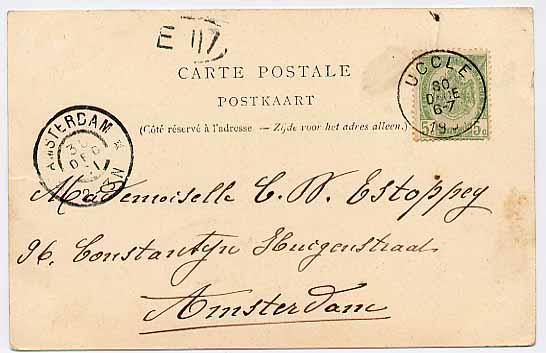 E 117
CARTE POSTALE
POSTKAART
(Côté réservé à l'adresse — Zijde voor het adres alleen.)
UCCLE
30
DECE
6-7
19
5 5c
AMSTERDAM
30
DEC
Mademoiselle C. W. Estoppey
96. Constantyn Huigenstraat
Amsterdam